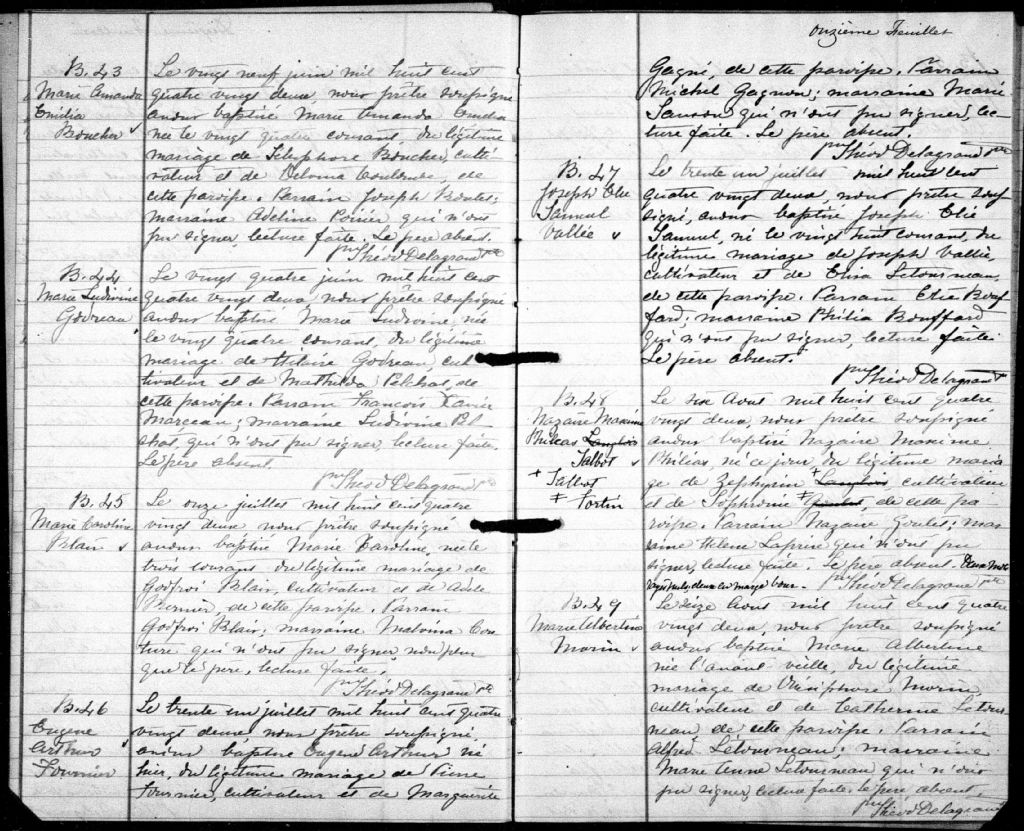 B. 43
Marie Amanda
Emélia
Boucher
Le vingt neuf juin mil huit cent
quatre vingt deux, nous prêtre soussigné
avons baptisé Marie Amanda Emélia
née le vingt quatre courant, du légitime
mariage de Télesphore Boucher, culti-
vateur et de Delvina, de
cette paroisse. Parrain Joseph
marraine Adeline Poirier qui n'ont
pu signer, lecture faite. Le père absent.
Théod Delagrave ptre
B. 44
Marie Ludivine
Godreau
Le vingt quatre juin mil huit cent
quatre vingt deux nous prêtre soussigné
avons baptisé Marie Ludivine, née
le vingt quatre courant, du légitime
mariage de Hilaire Godreau, cul
tivateur et de Mathilda, de
cette paroisse. Parrain François Xavier
Marceau; marraine Ludivine
qui n'ont pu signer, lecture faite.
Le père absent.
Théod Delagrave ptre
B. 45
Marie Caroline
Blair
Le onze juillet mil huit cent quatre
vingt deux nous prêtre soussigné
avons baptisé Marie Caroline, née le
trois courant du légitime mariage de
Godfroi Blair, cultivateur et de Adèle
Mernier, de cette paroisse. Parrain
Godfroi Blair; marraine Malvina Cou-
ture qui n'ont pu signer, non plus
que le père, lecture faite.
Théod Delagrave ptre
B. 46
Eugène
Arthur
Fournier
Le trente un juillet mil huit cent quatre
vingt deux, nous prêtre soussigné,
avons baptisé Eugène Arthur né
hier, du légitime mariage de Pierre
Fournier, cultivateur et de Marguerite
Onzième Feuillet
Gagné, de cette paroisse. Parrain
Michel Gagnon; marraine Marie
Samson qui n'ont pu signer, lec-
ture faite. Le père absent.
Théod Delagrave ptre
B. 47
Joseph Elie
Samuel
Vallée
Le trente un juillet mil huit cent
quatre vingt deux, nous prêtre sous
signé, avons baptisé Joseph Elié
Samuel, né le vingt huit courant, du
légitime mariage de Joseph Vallée,
cultivateur et de Elisa Letourneau,
de cette paroisse. Parrain Elie Bouf
fard; marraine Philia Bouffard
qui n'ont pu signer, lecture faite
Le père absent.
Théod Delagrave ptre
B. 48
Nazaire Maxime
Philéas Langlois
Talbot
+ Talbot
‡ Fortin
Le six Août mil huit cent quatre
vingt deux, nous prêtre soussigné
avons baptisé Nazaire Maxime
Philias, né ce jour, du légitime maria
ge de Zéphyrin + Langlois cultivateur
et de Sophronie ‡, de cette pa
roisse. Parrain Nazaire Goulet; mar
raine Hélène Laprise qui n'ont pu
signer, lecture faite. Le père absent. Deux mots
rayés nuls, deux en marge bons.
Théod Delagrave ptre
B. 49
Marie Albertine
Morin
Le seize Août mil huit cent quatre
vingt deux, nous prêtre soussigné
avons baptisé Marie Albertine
née l'avant veille du légitime
mariage de Onésiphore Morin,
cultivateur et de Catherine Létour
neau de cette paroisse. Parrain
Alfred Létourneau; marraine
Marie Letourneau qui n'ont
pu signer, lecture faite. le père absent.
Théod Delagrave